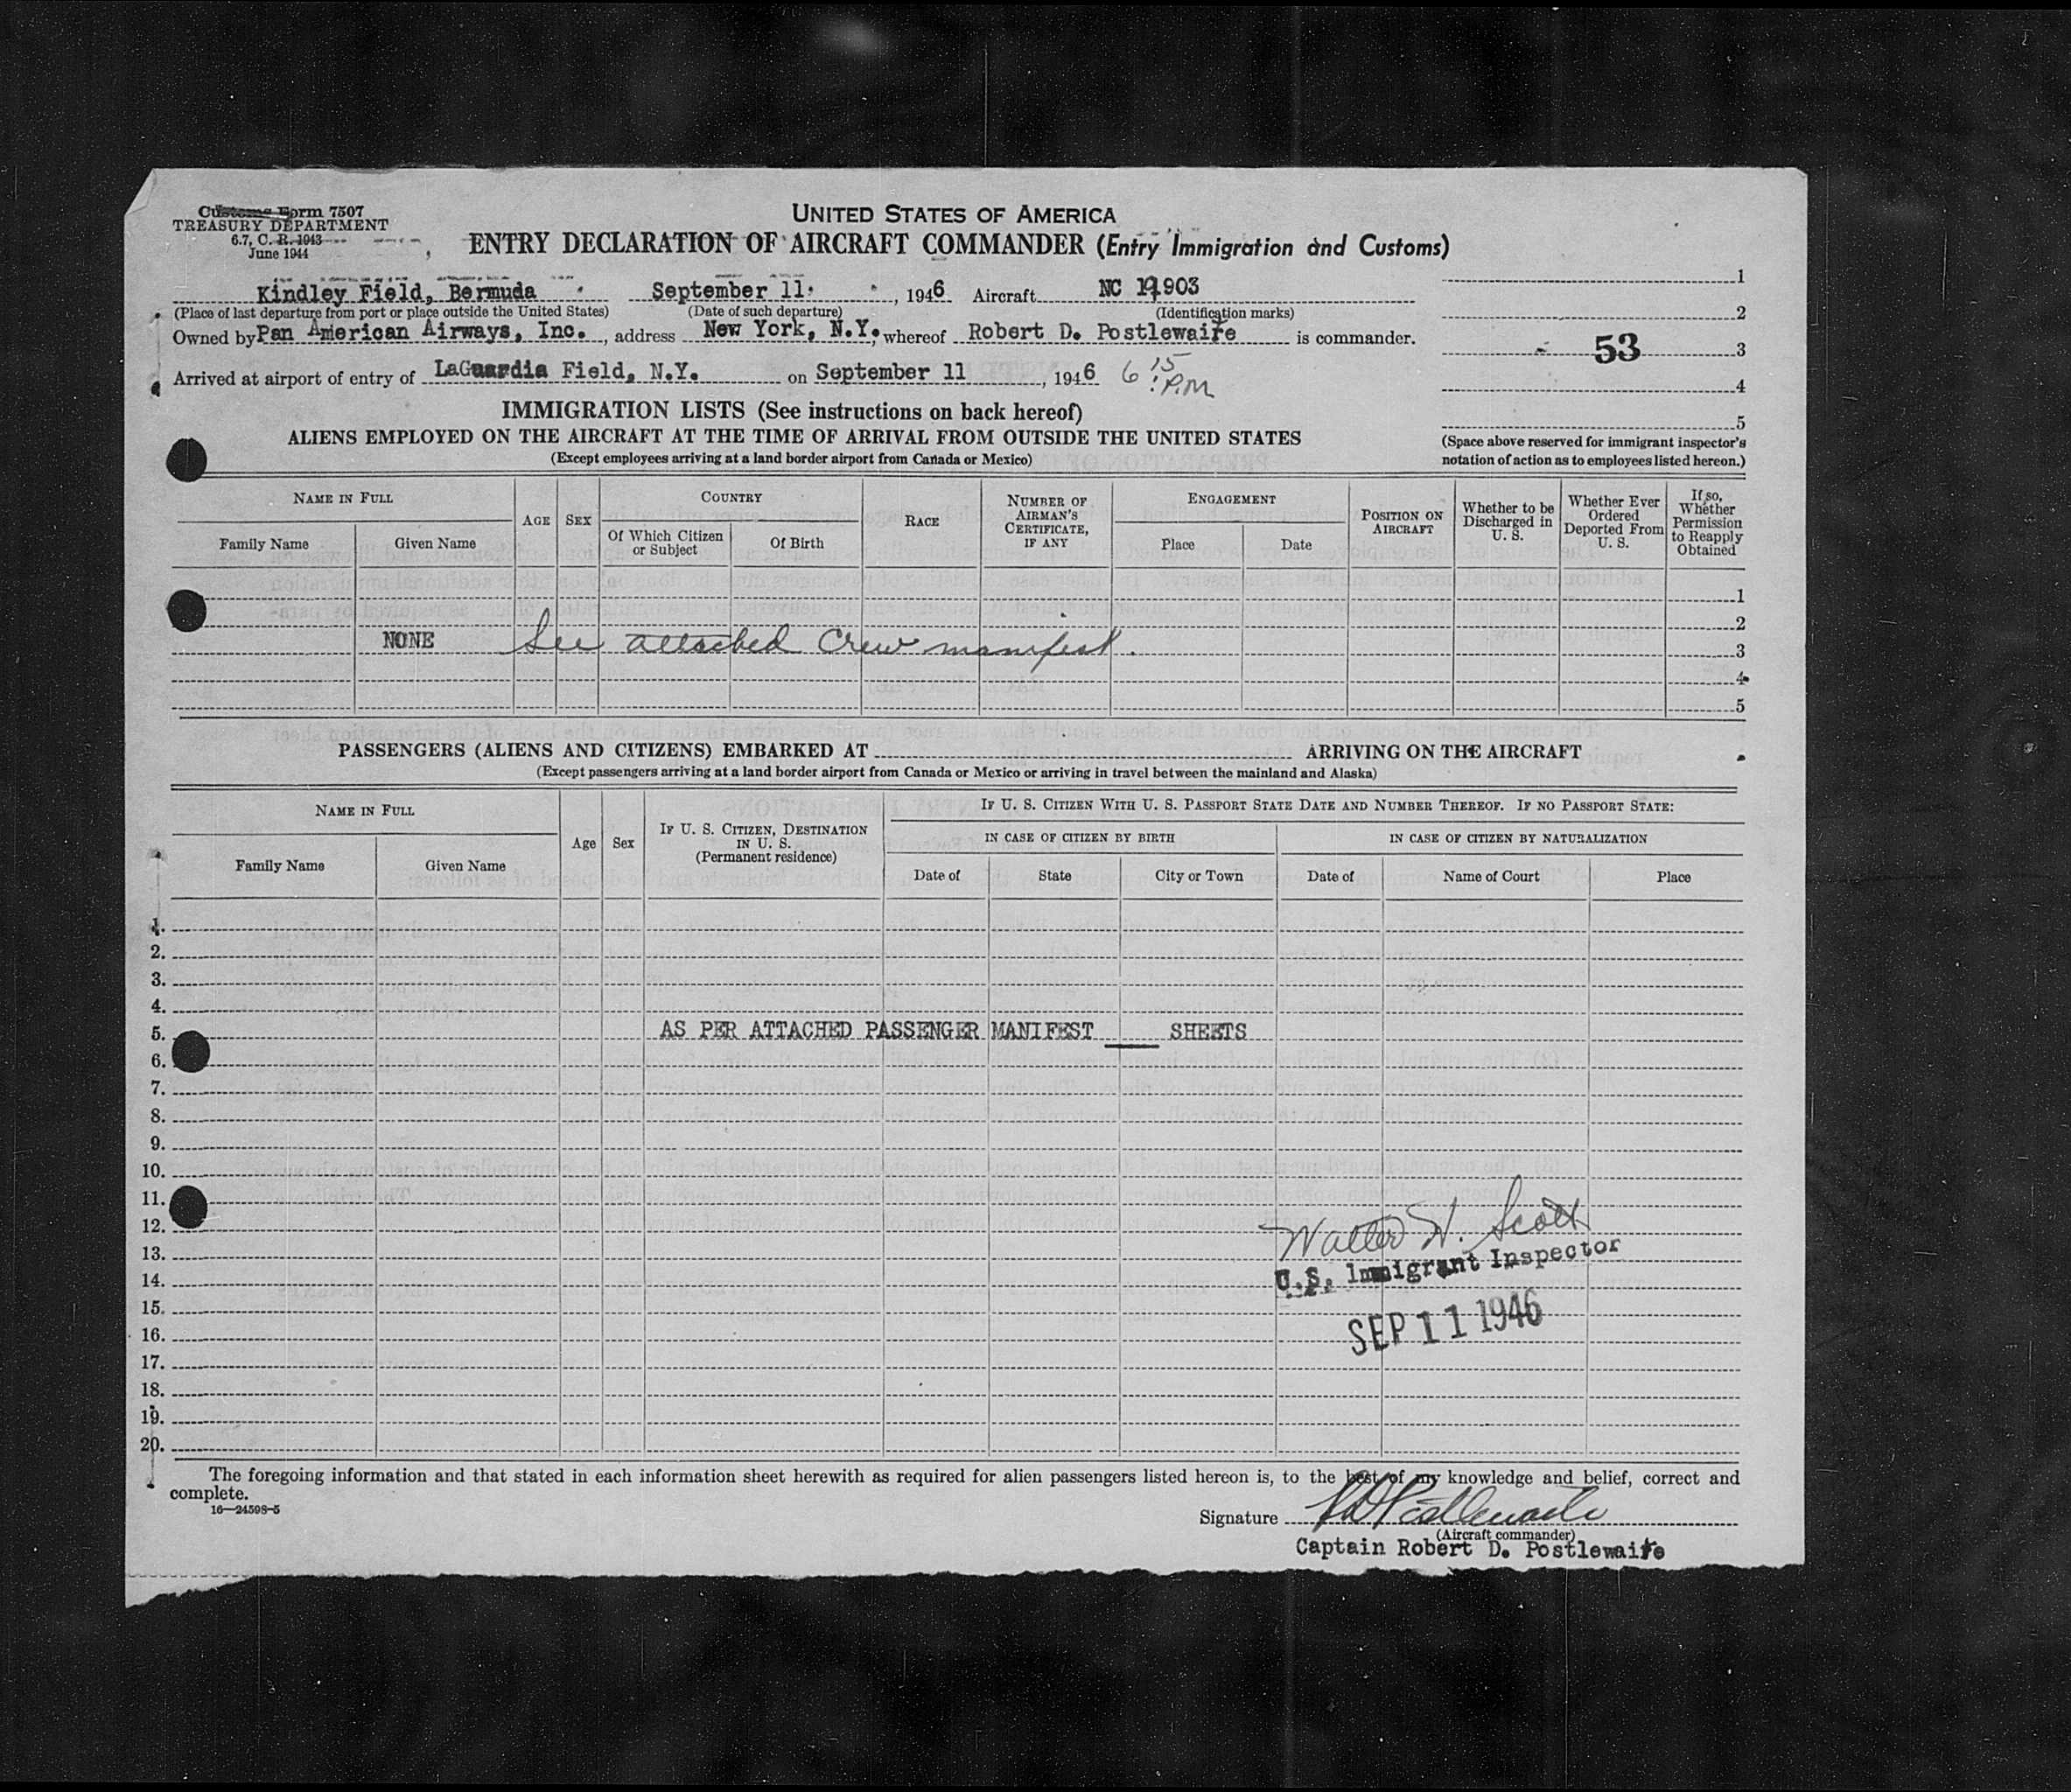 Customs Form 7507
TREASURY DEPARTMENT
6.7, C. R. 1943
June 1944
UNITED STATES OF AMERICA
ENTRY DECLARATION OF AIRCRAFT COMMANDER (Entry Immigration and Customs)
Kindley Field, Bermuda September 11, 1946 Aircraft NC 903
(Place of last departure from port or place outside the United States) (Date of such departure) (Identification marks)
Owned by Pan American Airways, Inc., address New York, N.Y., whereof Robert D. Postlewaite is commander.
Arrived at airport of entry of LaGuardia Field, N.Y. on September 11, 1946 6:15 P.M
1
2
53 3
4
5
(Space above reserved for immigrant inspector's
notation of action as to employees listed hereon.)
IMMIGRATION LISTS (See instructions on back hereof)
ALIENS EMPLOYED ON THE AIRCRAFT AT THE TIME OF ARRIVAL FROM OUTSIDE THE UNITED STATES
(Except employees arriving at a land border airport from Canada or Mexico)
NAME IN FULL
Family Name Given Name
AGE SEX
COUNTRY
Of Which Citizen or Subject Of Birth
RACE
NUMBER OF AIRMAN'S CERTIFICATE, IF ANY
ENGAGEMENT
Place Date
POSITION ON AIRCRAFT
Whether to be Discharged in U. S.
Whether Ever Ordered Deported From U. S.
If so, Whether Permission to Reapply Obtained
1
2
NONE See attached Crew manifest. 3
4
5
PASSENGERS (ALIENS AND CITIZENS) EMBARKED AT ARRIVING ON THE AIRCRAFT
(Except passengers arriving at a land border airport from Canada or Mexico or arriving in travel between the mainland and Alaska)
NAME IN FULL
Family Name Given Name
Age Sex
IF U. S. CITIZEN, DESTINATION IN U. S.
(Permanent residence)
IF U. S. CITIZEN WITH U. S. PASSPORT STATE DATE AND NUMBER THEREOF. IF NO PASSPORT STATE:
IN CASE OF CITIZEN BY BIRTH IN CASE OF CITIZEN BY NATURALIZATION
Date of State City or Town Date of Name of Court Place
1.
2.
3.
4.
5. AS PER ATTACHED PASSENGER MANIFEST SHEETS
6.
7.
8.
9.
10.
11.
12.
13.
14.
15.
16.
17.
18.
19.
20.
Walter W. Scott
U.S. Immigrant Inspector
SEP 11 1946
The foregoing information and that stated in each information sheet herewith as required for alien passengers listed hereon is, to the best of my knowledge and belief, correct and
complete.
16—24598-5
Signature RDPostlewaite
(Aircraft commander)
Captain Robert D. Postlewaite